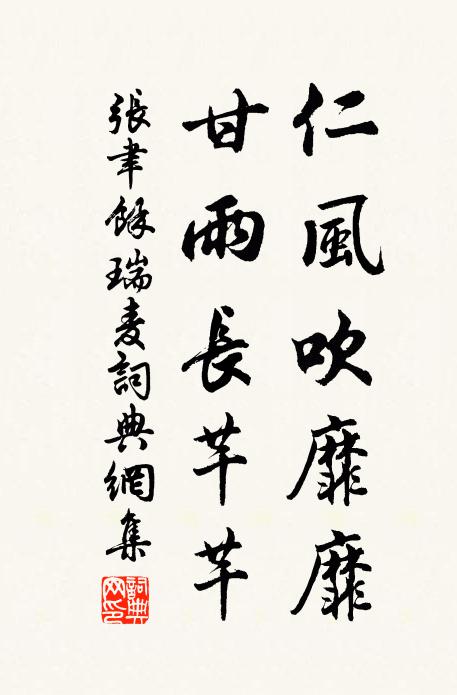 仁風吹靡靡
甘雨長芊芊
張聿餘瑞麦詞典網集
詞典网印